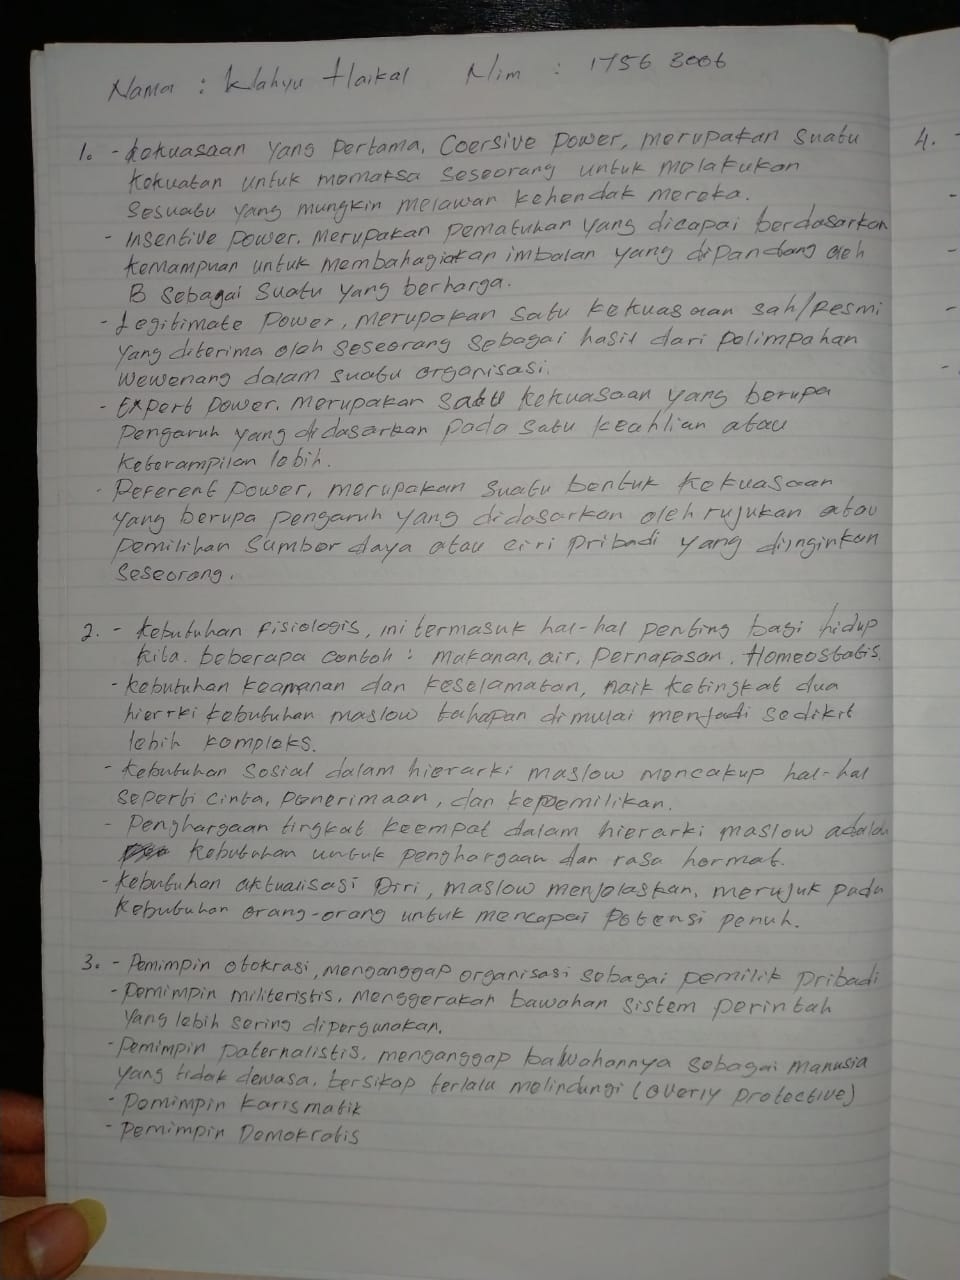 Nama : Wahyu Haikal Nim : 1756 3006
1. - Kekuasaan yang Pertama, Coersive Power, merupakan suatu
kekuatan untuk memaksa seseorang untuk melakukan
sesuatu yang mungkin melawan kehendak mereka.
- Insentive power, merupakan pematuhan yang dicapai berdasarkan
kemampuan untuk membahagiakan imbalan yang dipandang oleh
B sebagai suatu yang berharga.
- Legitimate power, merupakan satu kekuasaan sah/resmi
yang diterima oleh seseorang sebagai hasil dari pelimpahan
wewenang dalam suatu organisasi.
- Expert power, merupakan satu kekuasaan yang berupa
pengaruh yang didasarkan pada satu keahlian atau
keterampilan lebih.
- Referent power, merupakan suatu bentuk kekuasaan
yang berupa pengaruh yang didasarkan oleh rujukan atau
pemilihan sumber daya atau ciri pribadi yang diinginkan
seseorang.
2. - Kebutuhan fisiologis, ini termasuk hal-hal penting bagi hidup
kita. beberapa contoh : makanan, air, pernafasan, Homeostatis.
- kebutuhan keamanan dan keselamatan, naik ketingkat dua
hierrki kebutuhan maslow tahapan dimulai menjadi sedikit
lebih kompleks.
- kebutuhan sosial dalam hierarki maslow mencakup hal-hal
seperti cinta, penerimaan, dan kepemilikan.
- Penghargaan tingkat keempat dalam hierarki maslow adalah
kebutuhan untuk penghargaan dan rasa hormat.
- kebutuhan aktualisasi Diri, maslow menjelaskan, merujuk pada
kebutuhan orang-orang untuk mencapai potensi penuh.
3. - Pemimpin otokrasi, menganggap organisasi sebagai pemilik pribadi
- Pemimpin militeristis, menggerakan bawahan sistem perintah
yang lebih sering dipergunakan.
- Pemimpin paternalistis, menganggap bawahannya sebagai manusia
yang tidak dewasa, bersikap terlalu melindungi (overly protective)
- Pemimpin karismatik
- Pemimpin Demokratis
4. -
-
-
-
-